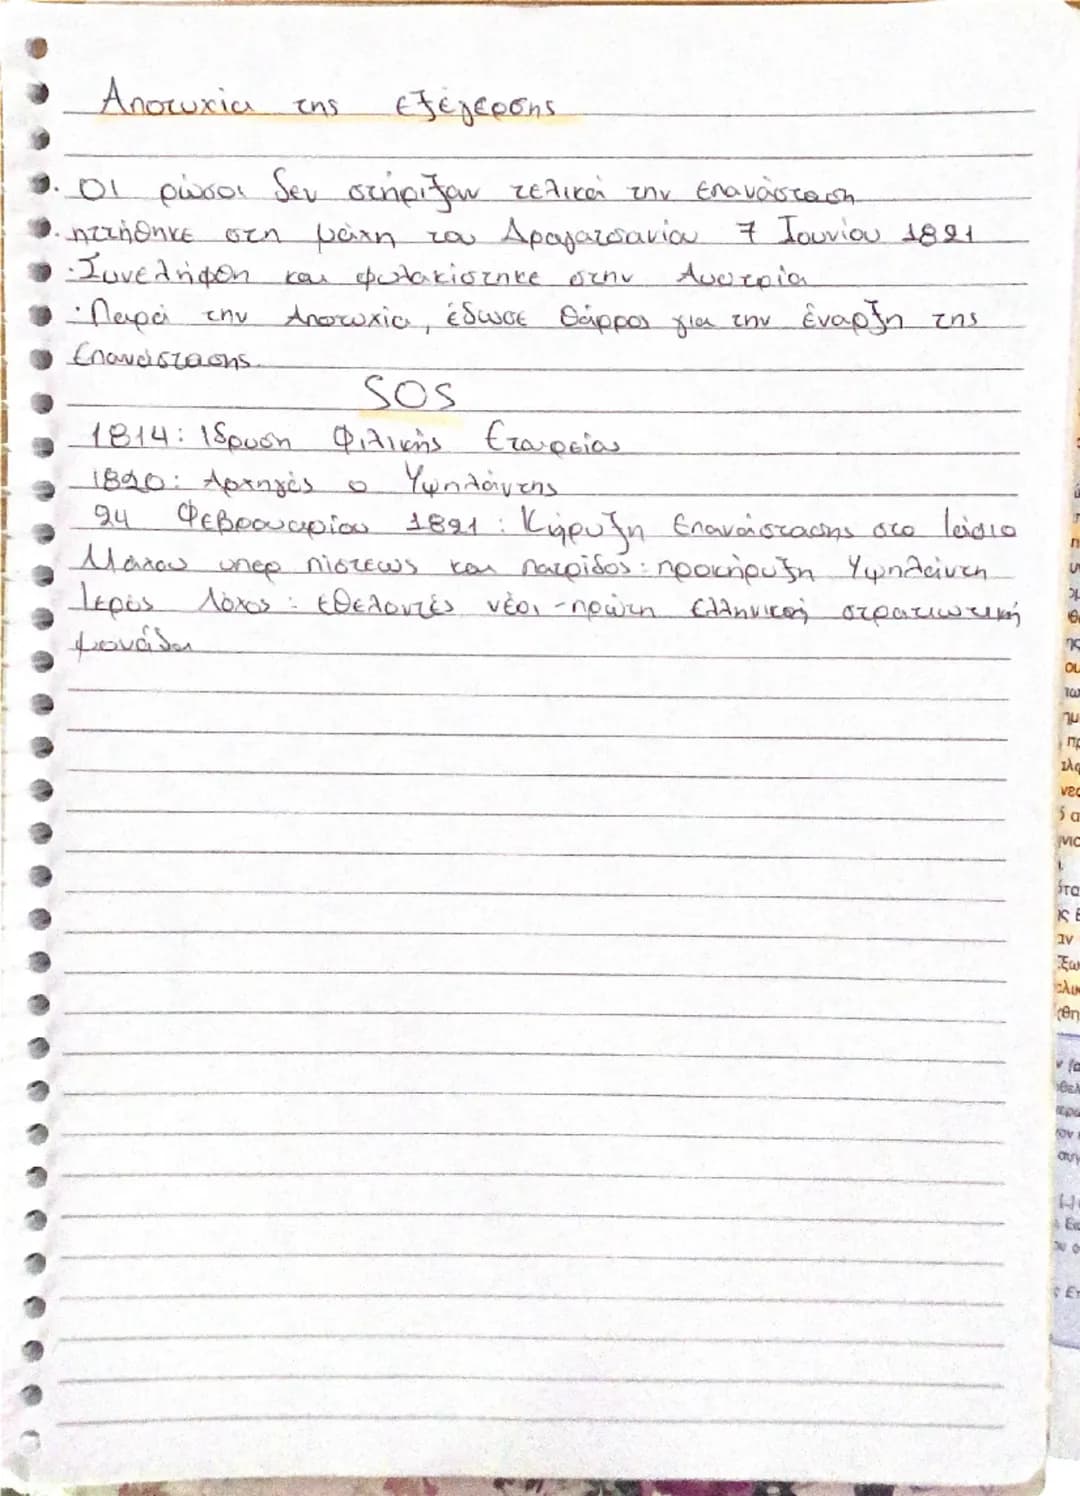 Αποτυχία της εξέγερσης
· Οι ρώσοι δεν στήριξαν τελικά την επανάσταση
· ηττήθηκε στη μάχη του Δραγατσανίου 7 Ιουνίου 1821
· Συνελήφθη και φυλακίστηκε στην Αυστρία
· Παρά την Αποτυχία, έδωσε θάρρος για την έναρξη της
επανάστασης.
SOS
1814: Ίδρυση Φιλικής Εταιρείας
1820: Αρχηγός ο Υψηλάντης
24 Φεβρουαρίου 1821: Κήρυξη Επανάστασης στο Ιάσιο
Μάχου υπερ πίστεως και πατρίδος: προκήρυξη Υψηλάντη
Ιερός Λόχος: εθελοντές νέοι - πρώτη ελληνική στρατιωτική
μονάδα